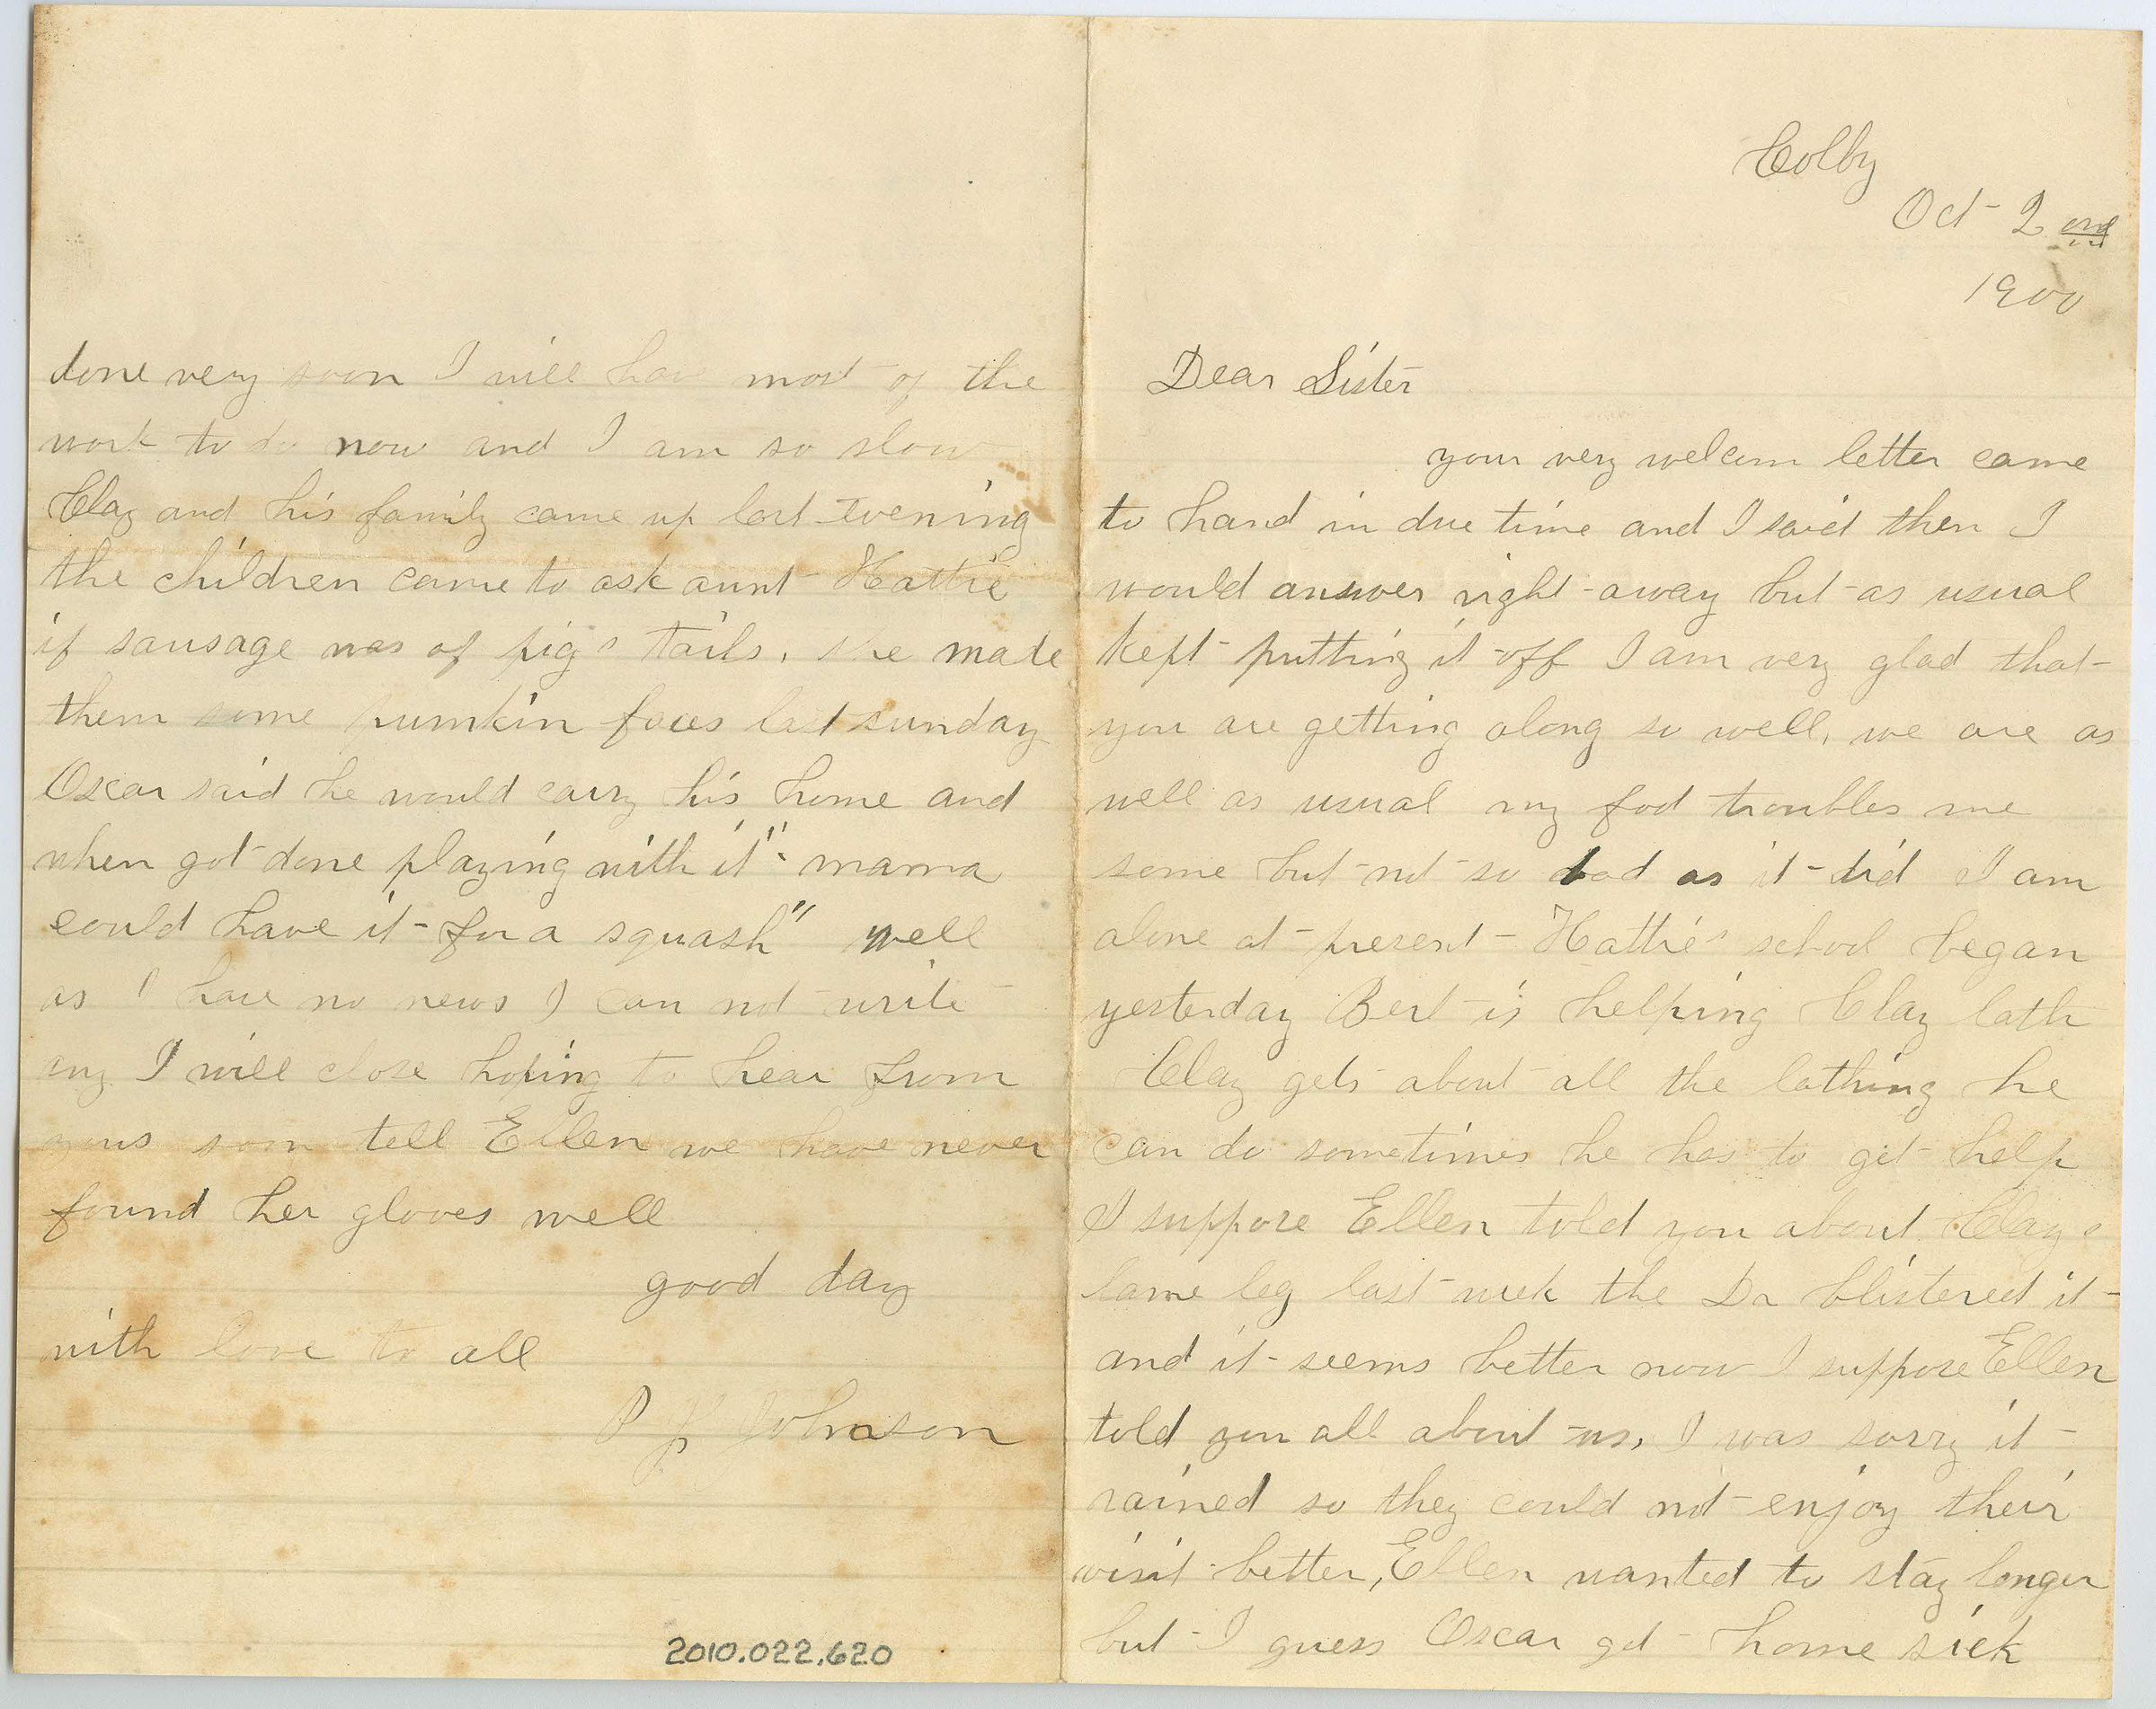 Colby
Oct 2nd
1900
Dear Sister
your very welcom letter came
to hand in due time and I said then I
would answer right away but as usual
kept putting it off I am very glad that
you are getting along so well, we are as
well as usual my foot troubles me
some but not so bad as it did I am
alone at present Hattie's school began
yesterday Bert is helping Clay lath
Clay gets about all the lathing he
can do sometimes he has to get help
I suppose Ellen told you about Clay's
lame leg last week the Dr blistered it
and it seems better now I suppose Ellen
told you all about us, I was sorry it
rained so they could not enjoy their
visit better, Ellen wanted to stay longer
but I guess Oscar got home sick
done very soon I will have most of the
work to do now and I am so slow
Clay and his family came up last evening
the children came to ask aunt Hattie
if sausage was of pigs tails. she made
them some pumkin faces last sunday
Oscar said he would carry his home and
when got done playing with it "mama
could have it for a squash" well
as I have no news I can not write
any I will close hoping to hear from
yous soon tell Ellen we have never
found her gloves well
good day
with love to all
P Johnson
2010.022.620